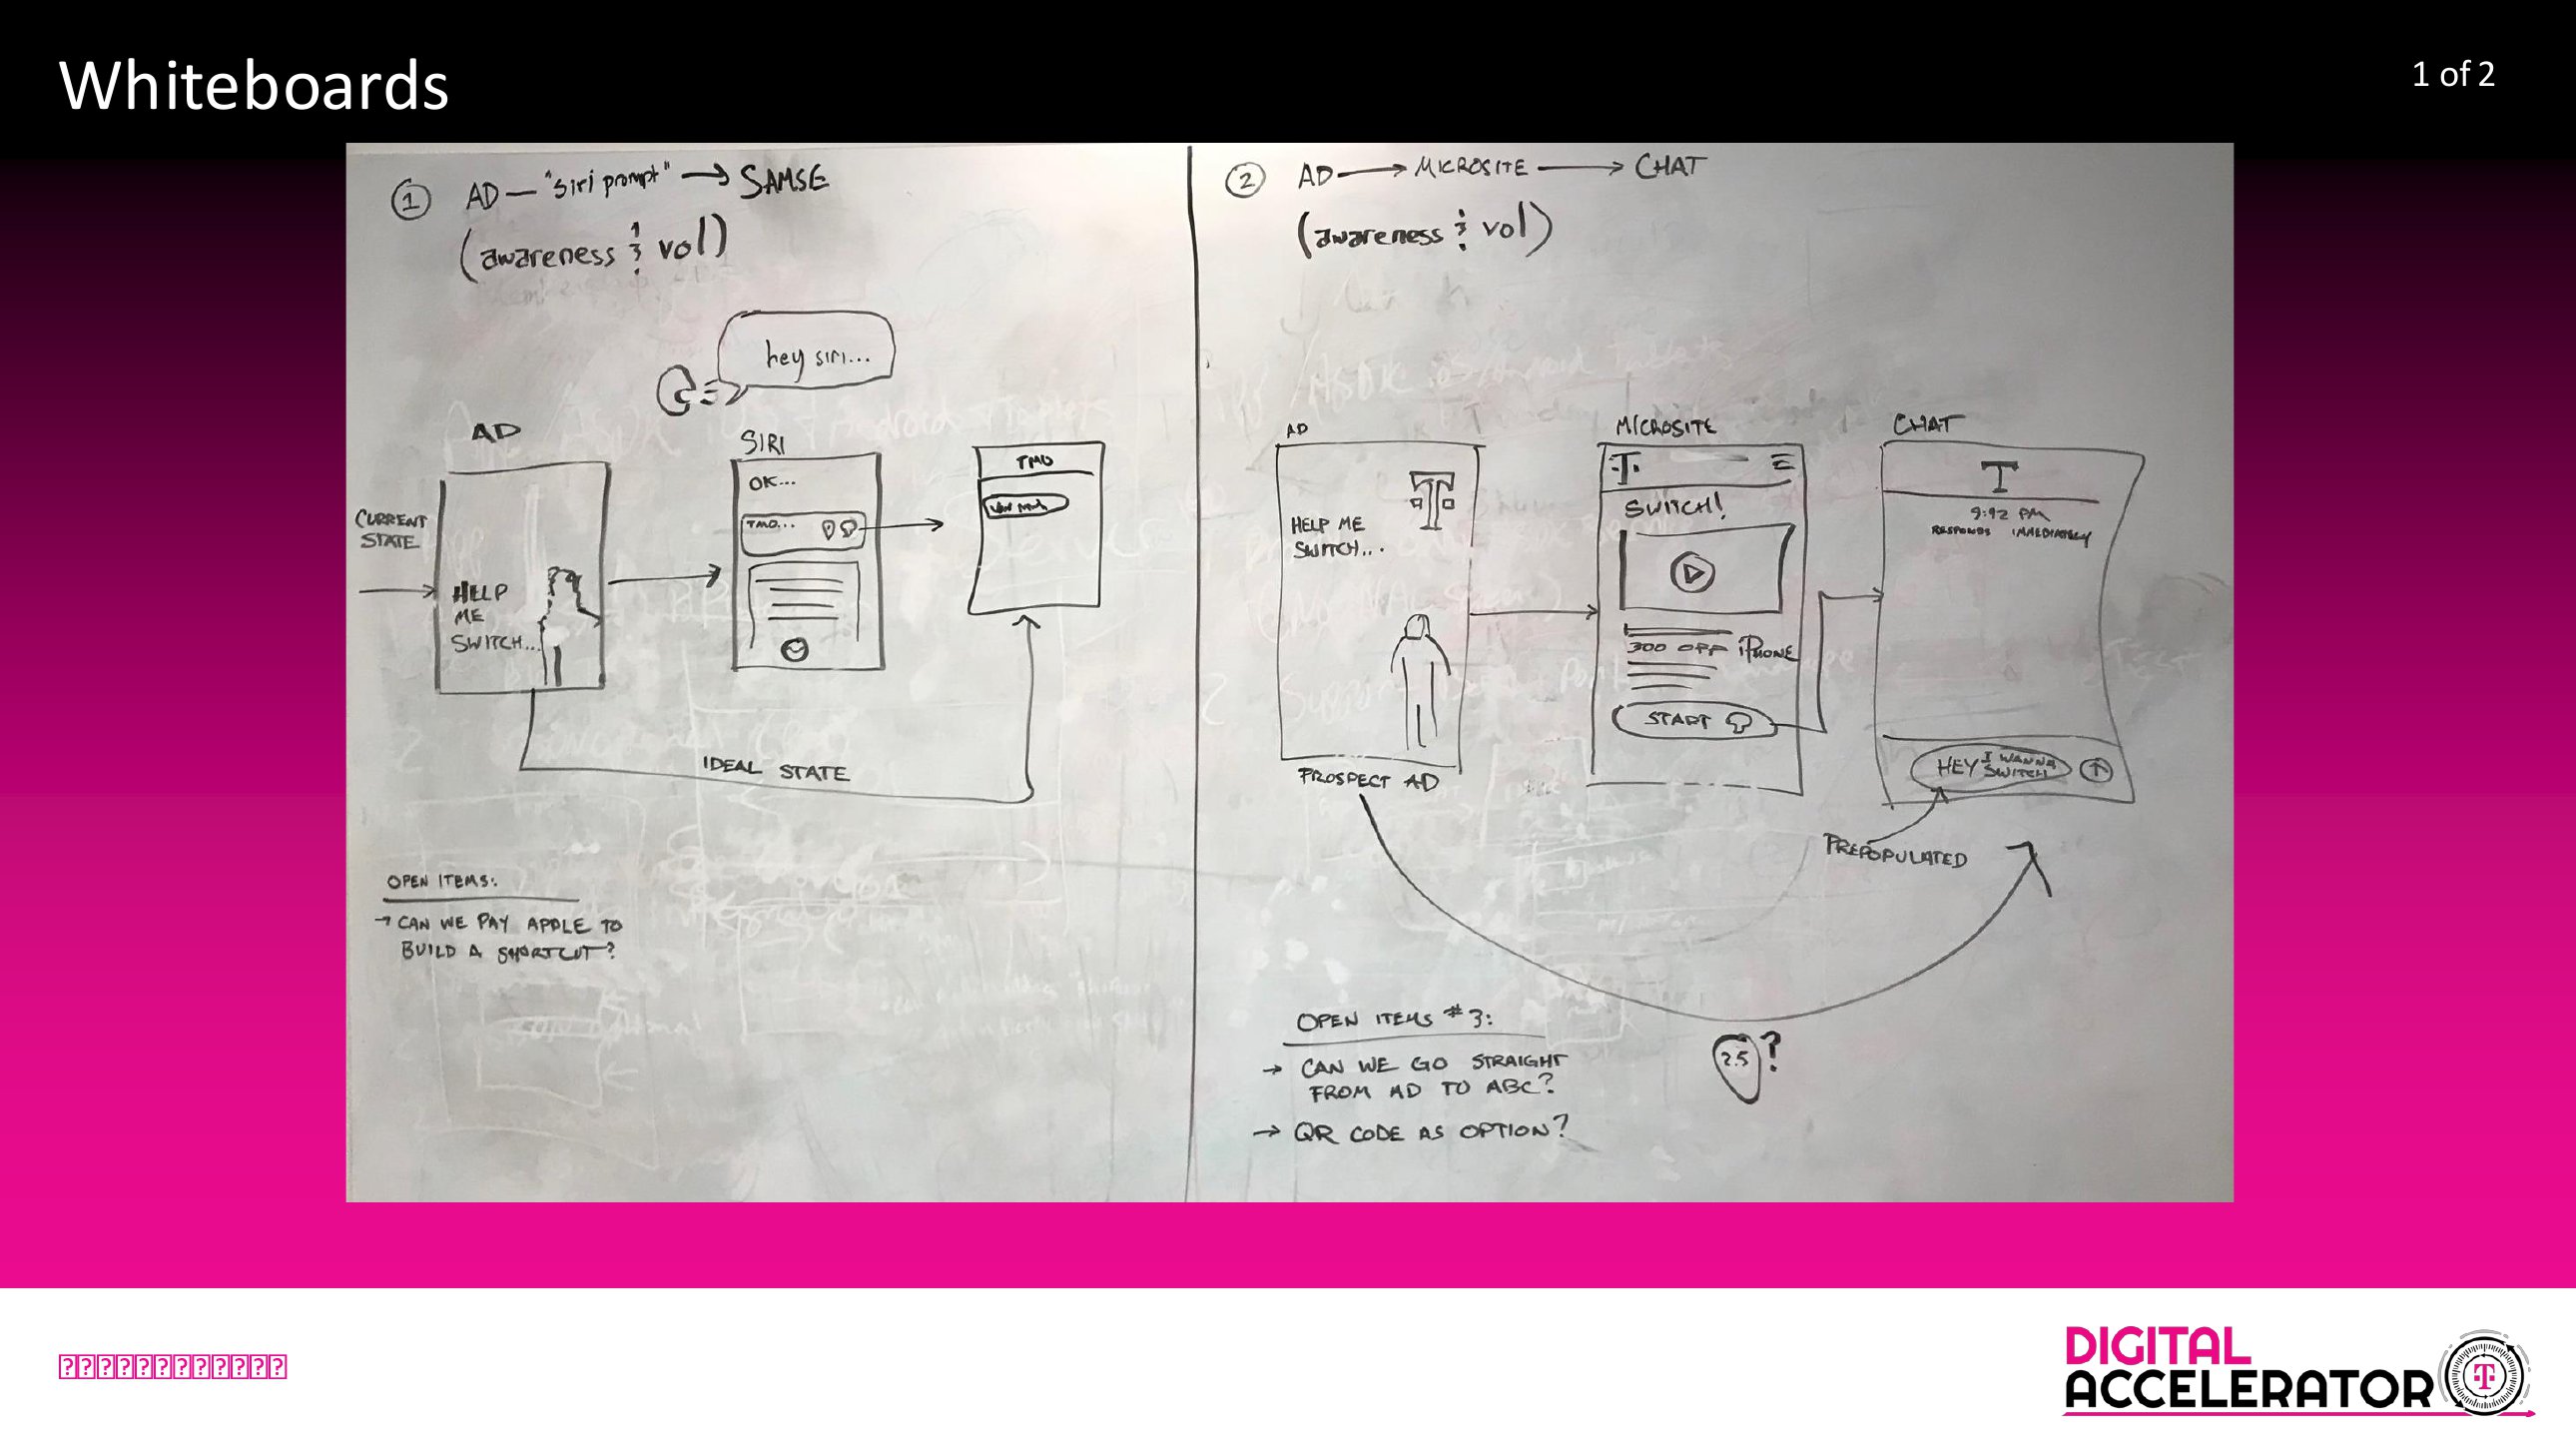 Whiteboards
1 of 2
① AD — "siri prompt" → SAMSE
(awareness & vol)
hey siri...
AD
CURRENT
STATE
HELP
ME
SWITCH...
SIRI
OK...
TMO...
TMO
IDEAL STATE
OPEN ITEMS:
→ CAN WE PAY APPLE TO
BUILD A SHORTCUT?
② AD → MICROSITE → CHAT
(awareness & vol)
AD
T
HELP ME
SWITCH...
PROSPECT AD
MICROSITE
T
SWITCH!
300 OFF iPHONE
START
CHAT
T
9:42 PM
RESPONDS IMMEDIATELY
HEY I WANNA
SWITCH
PREPOPULATED
2.5 ?
OPEN ITEMS #3:
→ CAN WE GO STRAIGHT
FROM AD TO ABC?
→ QR CODE AS OPTION?
DIGITAL
ACCELERATOR
T